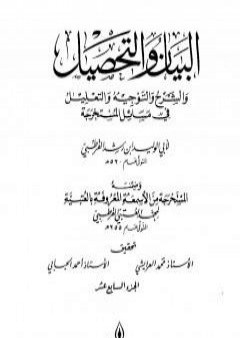 البيان والتحصيل
والشرح والتوجيه والتعليل
في مسائل المستخرجة
لأبي الوليد ابن رشد القرطبي
المتوفى عام ٥٢٠ هـ
وضمنه
المستخرجة من الأسمعة المعروفة بالعتبية
لمحمد العتبي القرطبي
المتوفى عام ٢٥٥ هـ
تحقيق
الأستاذ محمد العرايشي الأستاذ أحمد الحبابي
الجزء السابع عشر